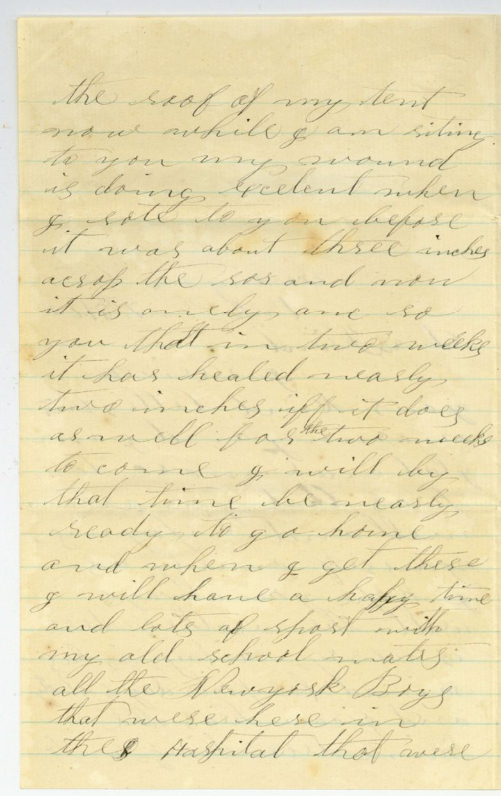 the roof of my tent
now while I am riting
to you my wound
is doing excelent when
I rote to you before
it was about three inches
acros the sor and now
it is onely one so
you that in two weeks
it has healed nearly
two inches iff it does
as well for the two weeks
to come I will by
that time be nearly
ready to go home
and when I get there
I will have a happy time
and lots of sport with
my old school mates
all the Newyork Boys
that were here in
the Hospital that were